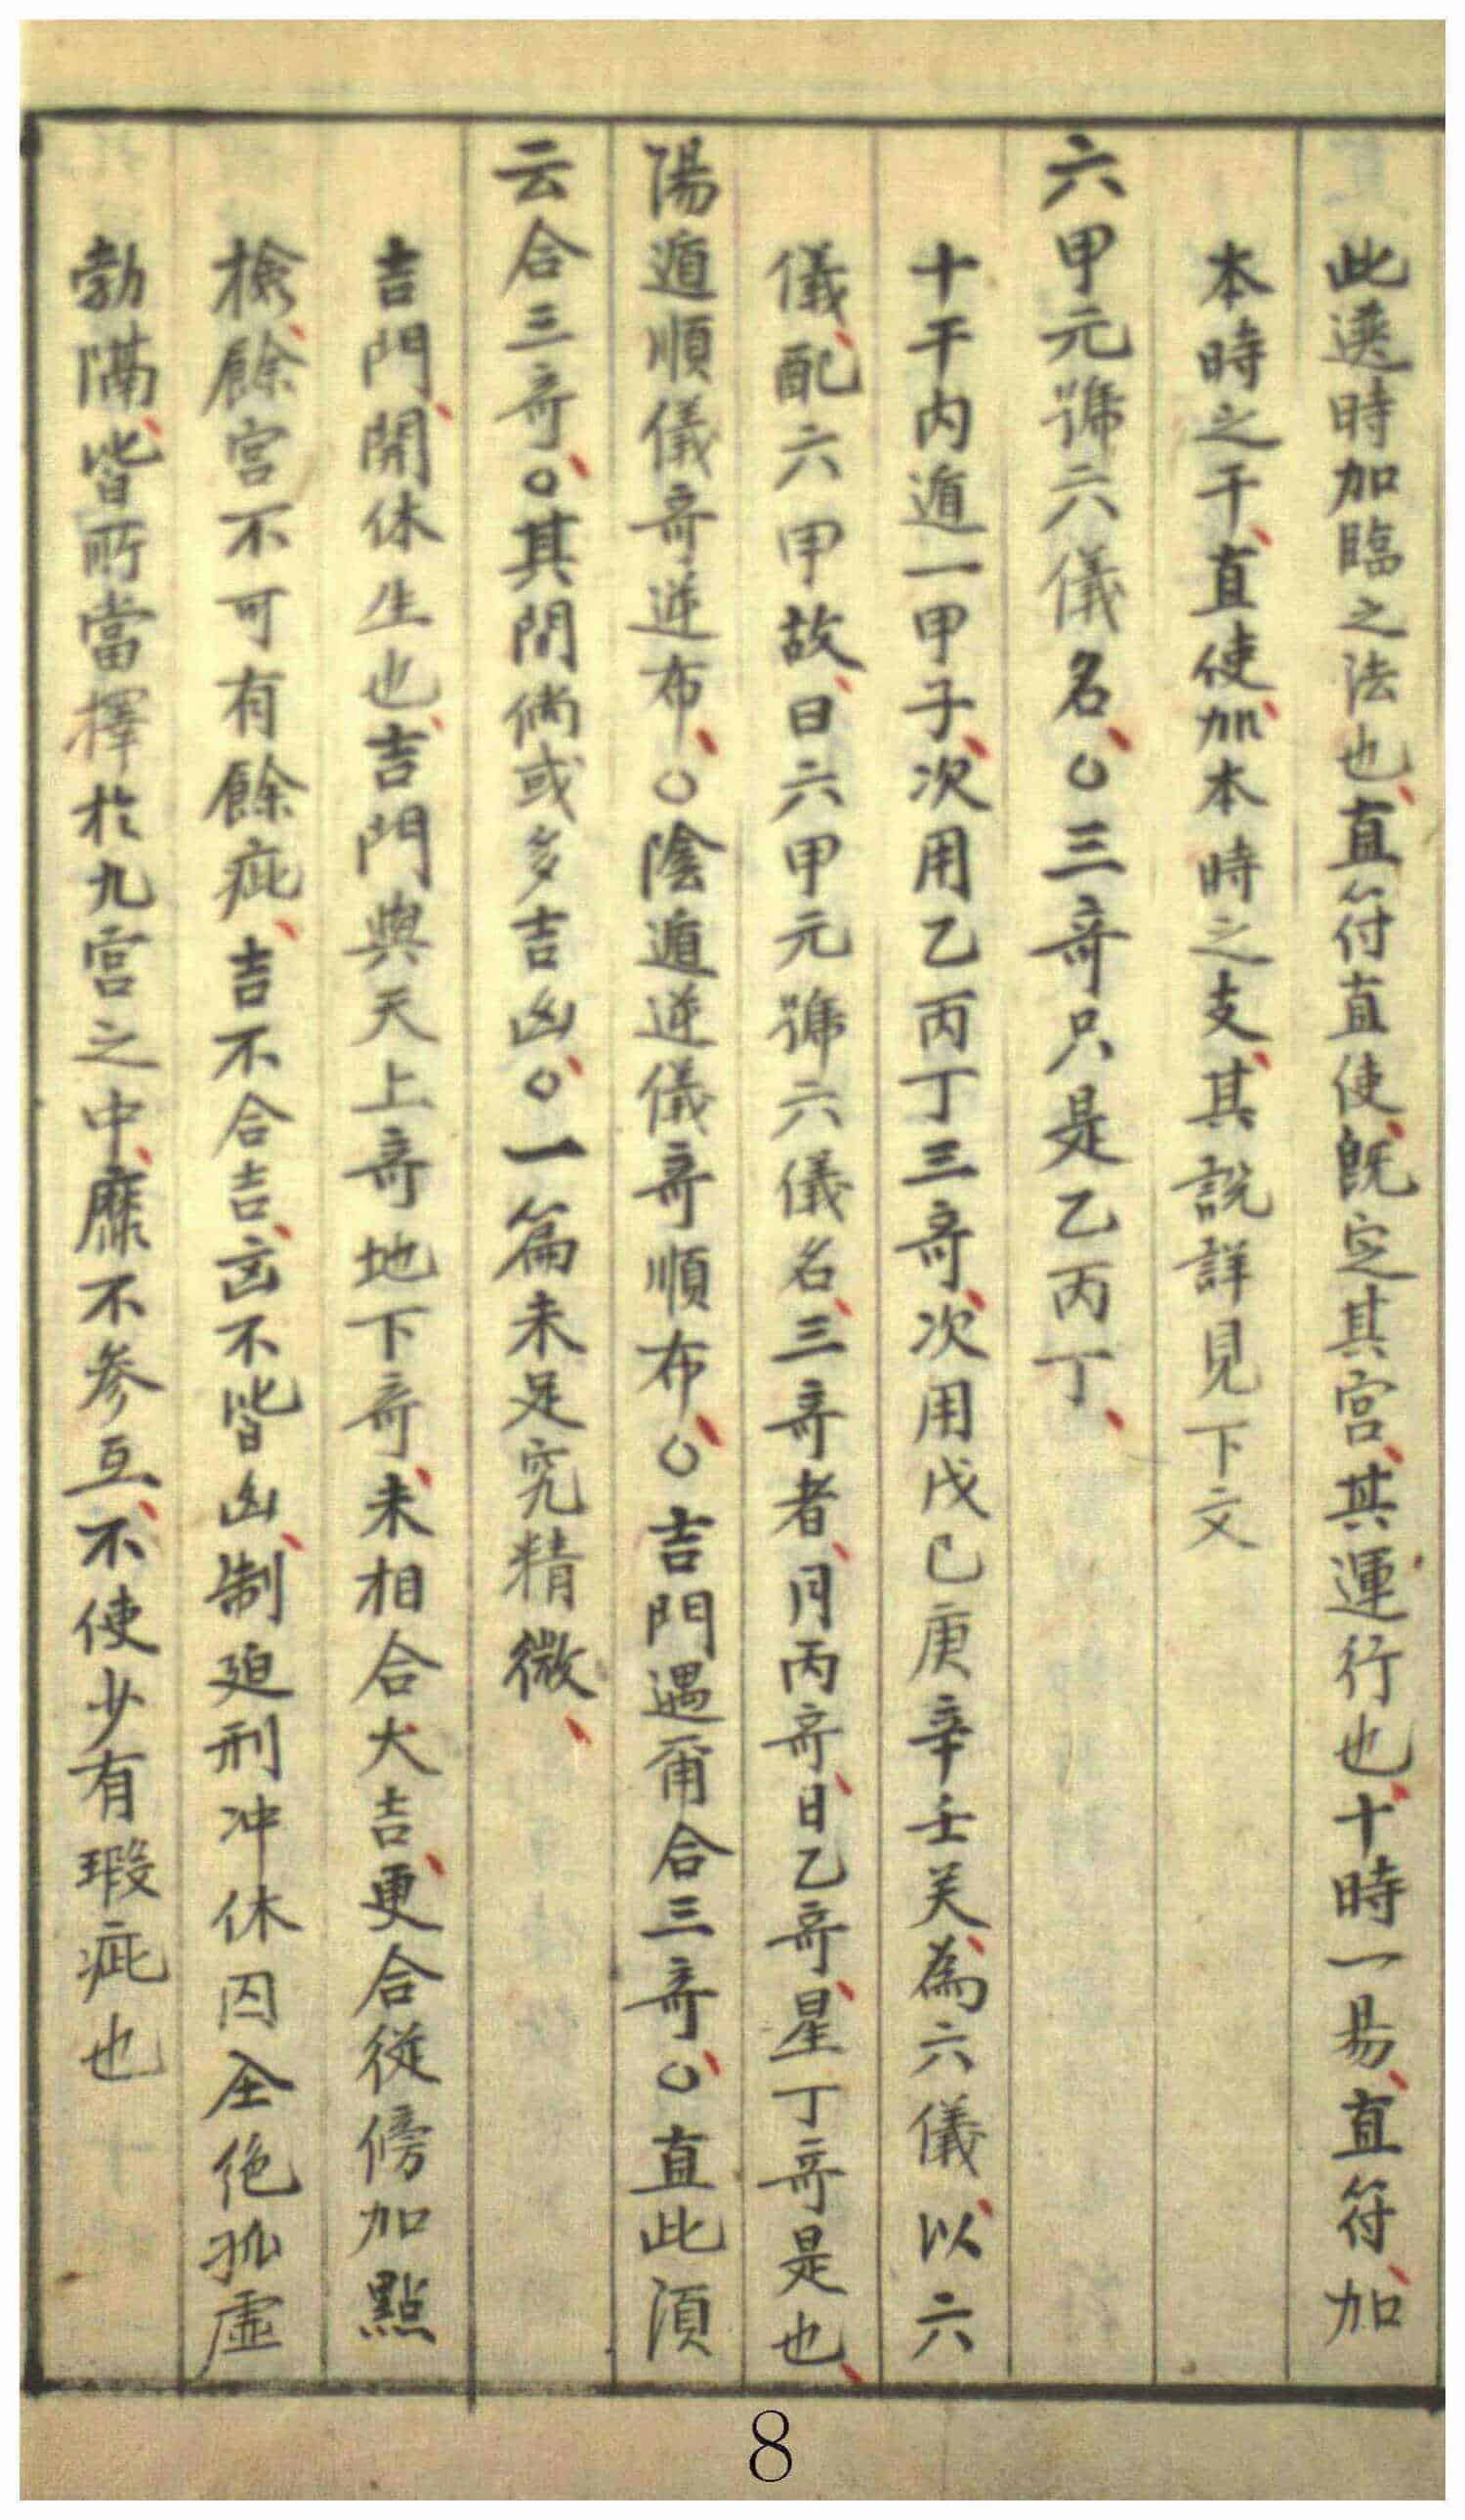 此選時加臨之法也、直符直使、旣定其宮、其運行也、十時一易、直符、加
本時之干、直使、加本時之支、其說詳見下文
六甲元號六儀名、○三竒只是乙丙丁、
十干内遁一甲子、次用乙丙丁三竒、次用戊己庚辛壬癸、為六儀、以六
儀、配六甲故、曰六甲元號六儀名、三竒者、月丙竒、日乙竒、星丁竒是也、
陽遁順儀竒逆布、○陰遁逆儀竒順布、○吉門遇甭合三竒、○直此湏
云合三竒、○其間倘或多吉凶、○一篇未足究精微、
吉門、開休生也、吉門與天上竒地下竒、未相合大吉、更合從傍加點
檢、餘宮不可有餘疵、吉不合吉、凶不皆凶、制廹刑冲休囚仝絶孤虛
勃隔、皆所當擇於九宮之中、靡不参互、不使少有瑕疵也
8